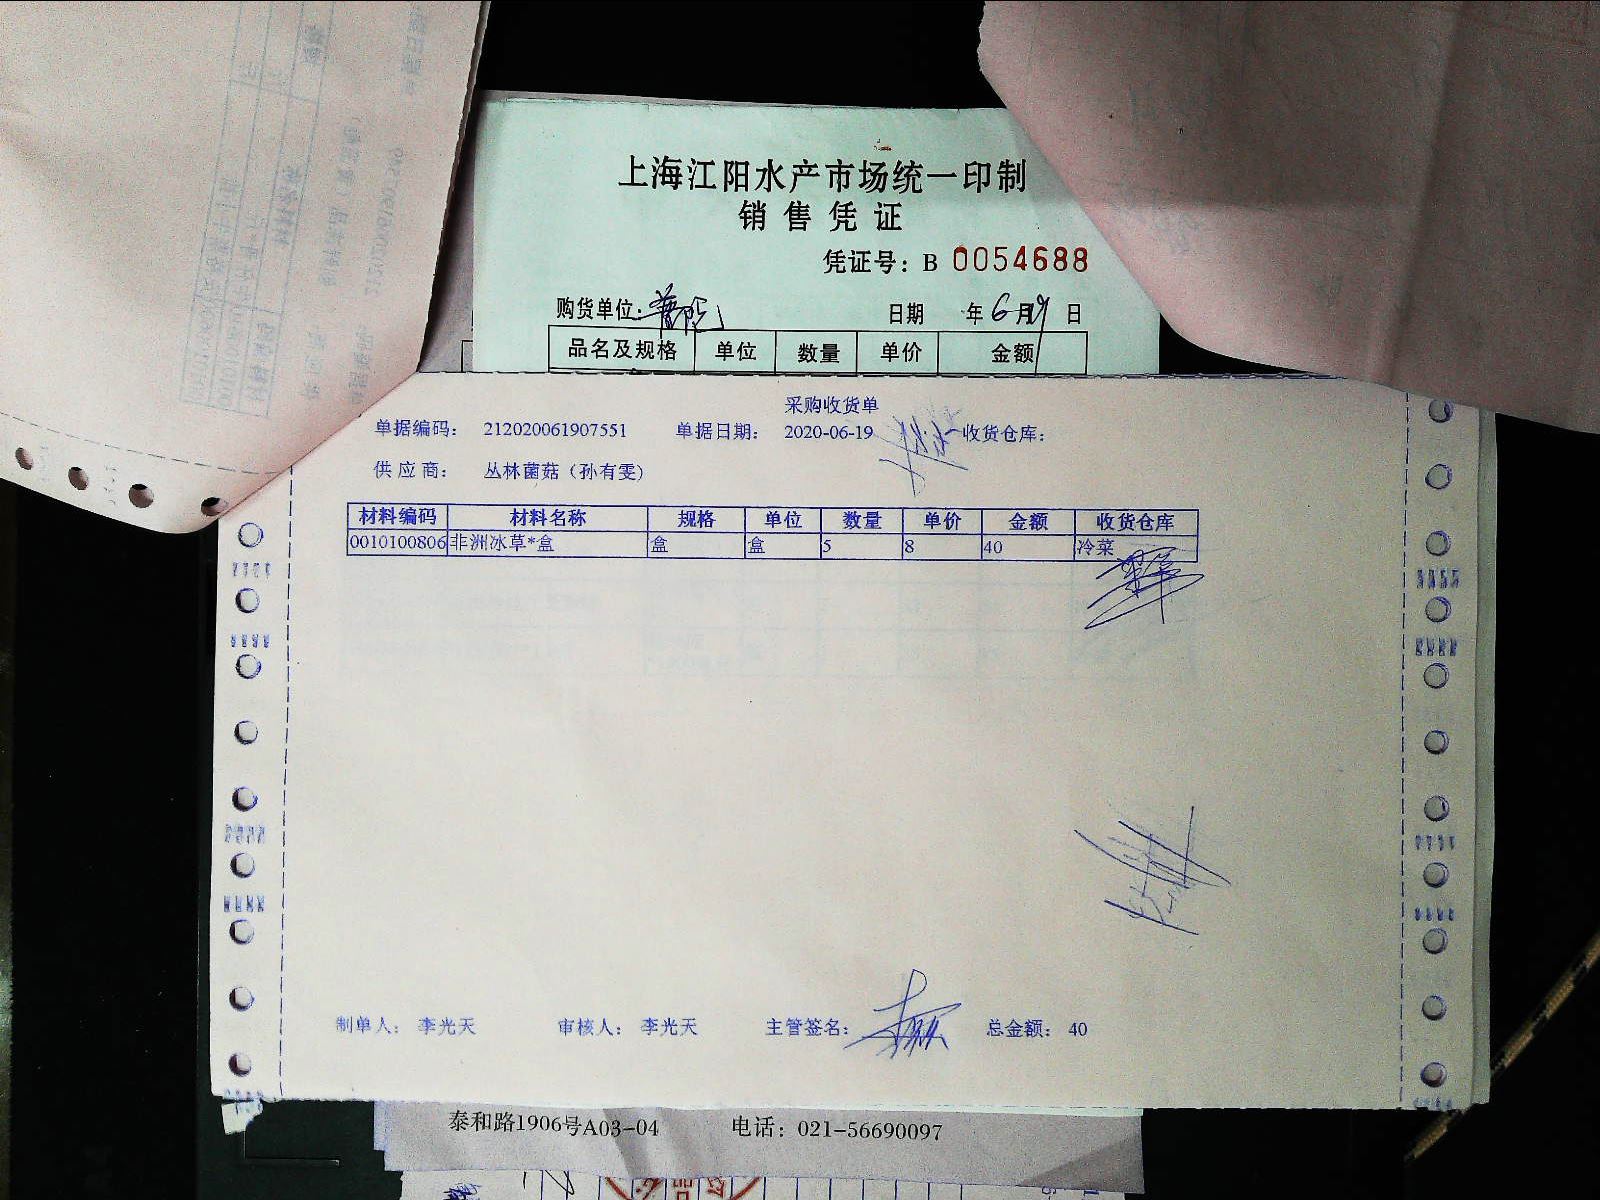 上海江阳水产市场统一印制
销售凭证
凭证号：B 0054688
购货单位： 日期 年6月19日
品名及规格 单位 数量 单价 金额
采购收货单
单据编码： 212020061907551 单据日期： 2020-06-19 收货仓库：
供应商： 丛林菌菇（孙有雯）
材料编码 材料名称 规格 单位 数量 单价 金额 收货仓库
0010100806 非洲冰草*盒 盒 盒 5 8 40 冷菜
制单人： 李光天 审核人： 李光天 主管签名： 总金额： 40
泰和路1906号A03-04 电话：021-56690097